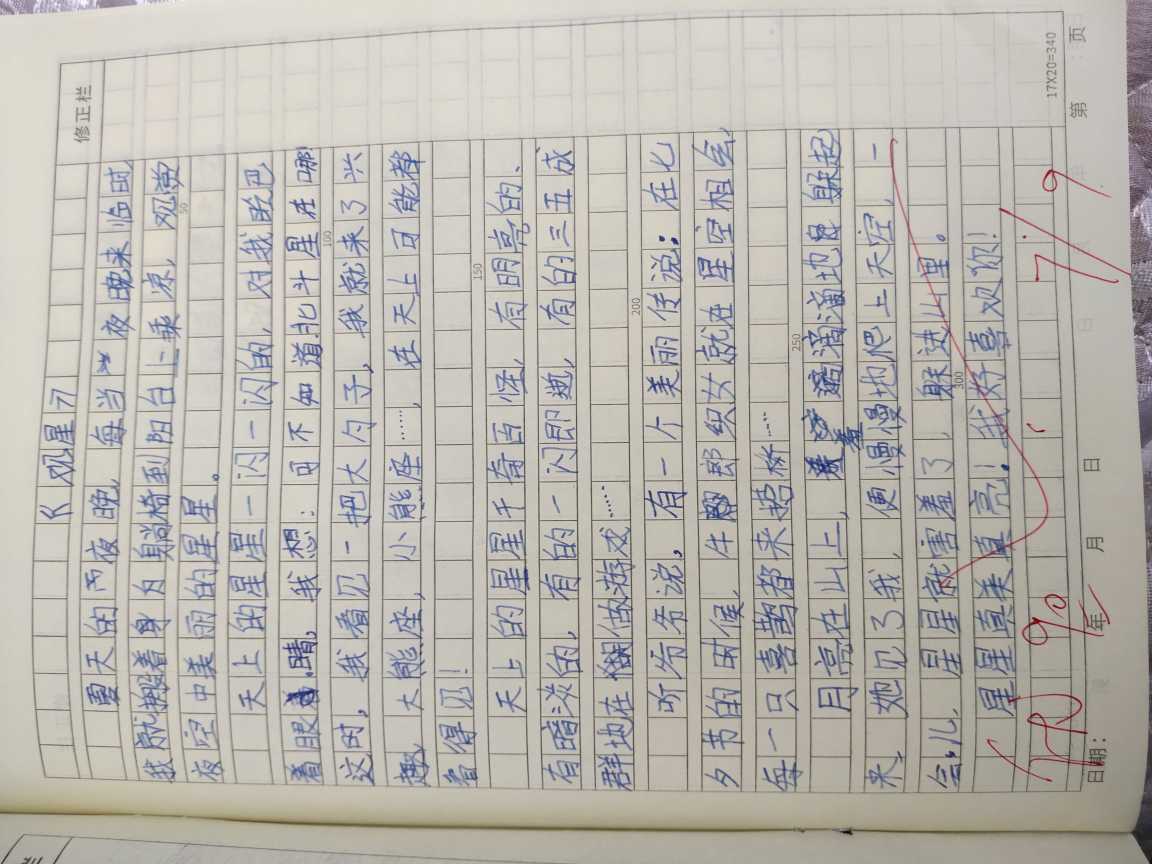 修正栏
《观星》
夏天的雨夜晚，每当夜晚来临时，
我就搬着身为躺椅到阳台上乘凉，观赏
夜空中美丽的星星。
天上的星星一闪一闪的，对我眨巴
着眼睛，我想：可不知道北斗星在哪！
这时，我看见一把大勺子，我就来了兴
趣，大熊座，小熊座……，在天上可能都
看得见！
天上的星星千奇百怪，有明亮的、
有暗淡的，有的一闪即逝，有的三五成
群地在做游戏……
听爷爷说，有一个美丽传说：在七
夕节的时候，牛郎织女就在星空相会，
每一只喜鹊都来搭桥……
月亮在山上，害羞滴滴地躲起
来，她见了我，便慢慢地爬上天空，一
会儿，星星就害羞了，躲进山里。
星星真美真亮！我好喜欢你！
50
100
150
200
250
300
17X20=340
日期：
年
月
日
第
页
90
7/9